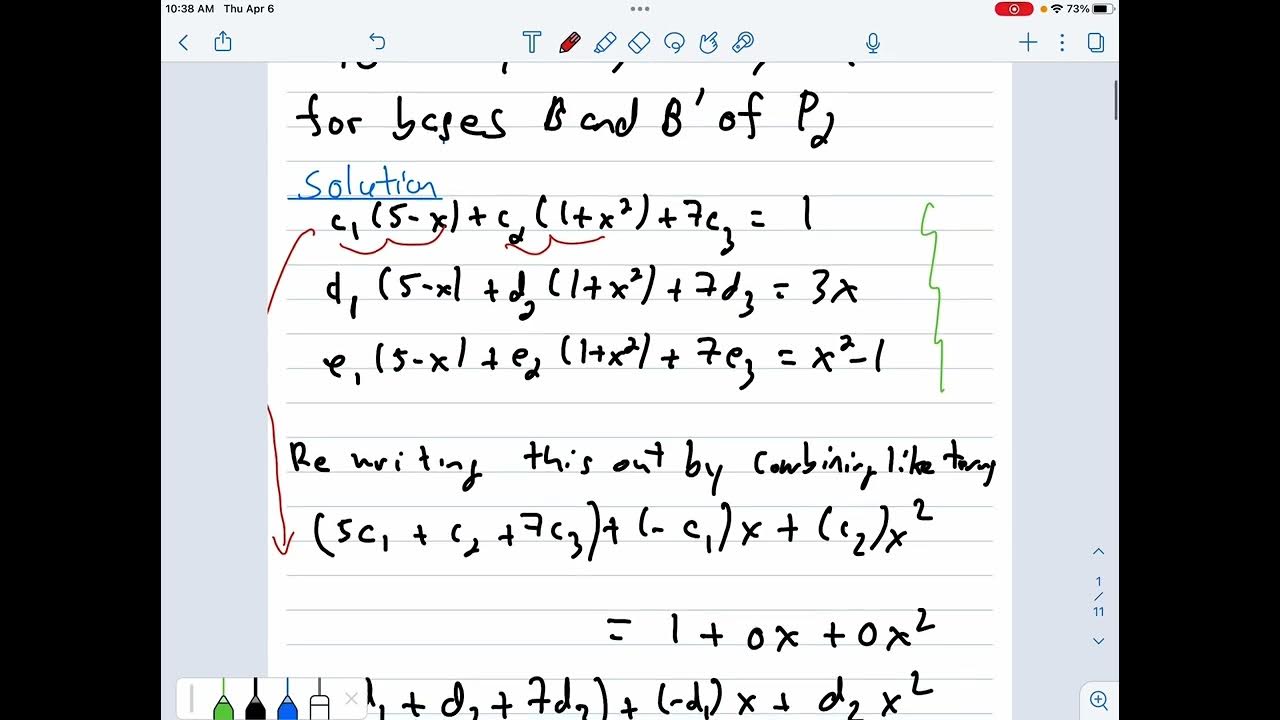 10:38 AM Thu Apr 6
73%
T
for bases B and B' of P₂
Solution
c₁(5-x) + c₂(1+x²) + 7c₃ = 1
d₁(5-x) + d₂(1+x²) + 7d₃ = 3x
e₁(5-x) + e₂(1+x²) + 7e₃ = x²-1
Rewriting this out by combining like terms
(5c₁ + c₂ + 7c₃) + (-c₁)x + (c₂)x²
= 1 + 0x + 0x²
+ d₂ + 7d₃) + (-d₁)x + d₂x²
1
/
11